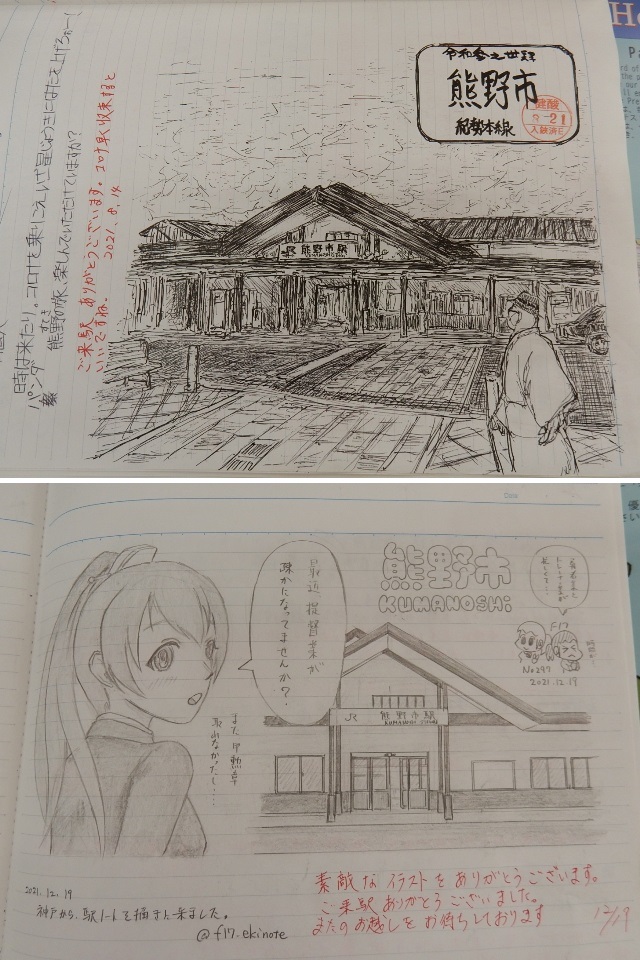 令和参之世界
熊野市
紀勢本線
8-21
JR 熊野市駅
ご来駅 ありがとうございます。コロナ早く収束すると
いいですね。 2021.8.14
時は来たり、コロナを乗りこえ
熊野の旅、楽しんでいただけていますか?
熊野市
KUMANOSHi
最近 提督業が
疎かになってませんか?
また甲勲章
取れなかったし…
F17
No297
2021.12.19
JR 熊野市駅
2021.12.19
神戸から、駅ノートを描きに来ました。
@f17.ekinote
素敵な イラストを ありがとうございます。
ご来駅 ありがとう ございました。
またのお越しを お待ちしております
12/19